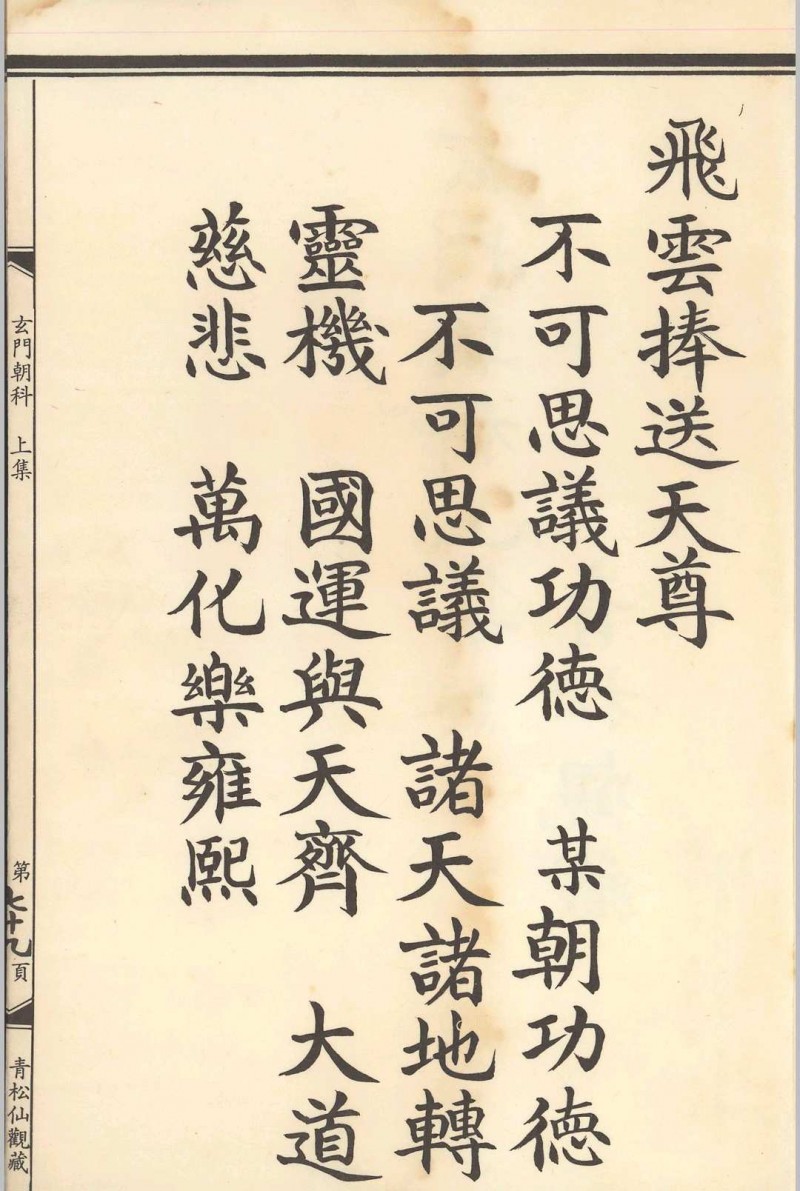 飛雲捧送天尊
不可思議功德 某朝功德
不可思議 諸天諸地轉
靈機 國運與天齊 大道
慈悲 萬化樂雍熙
玄門朝科 上集
第七十九頁
青松仙觀藏